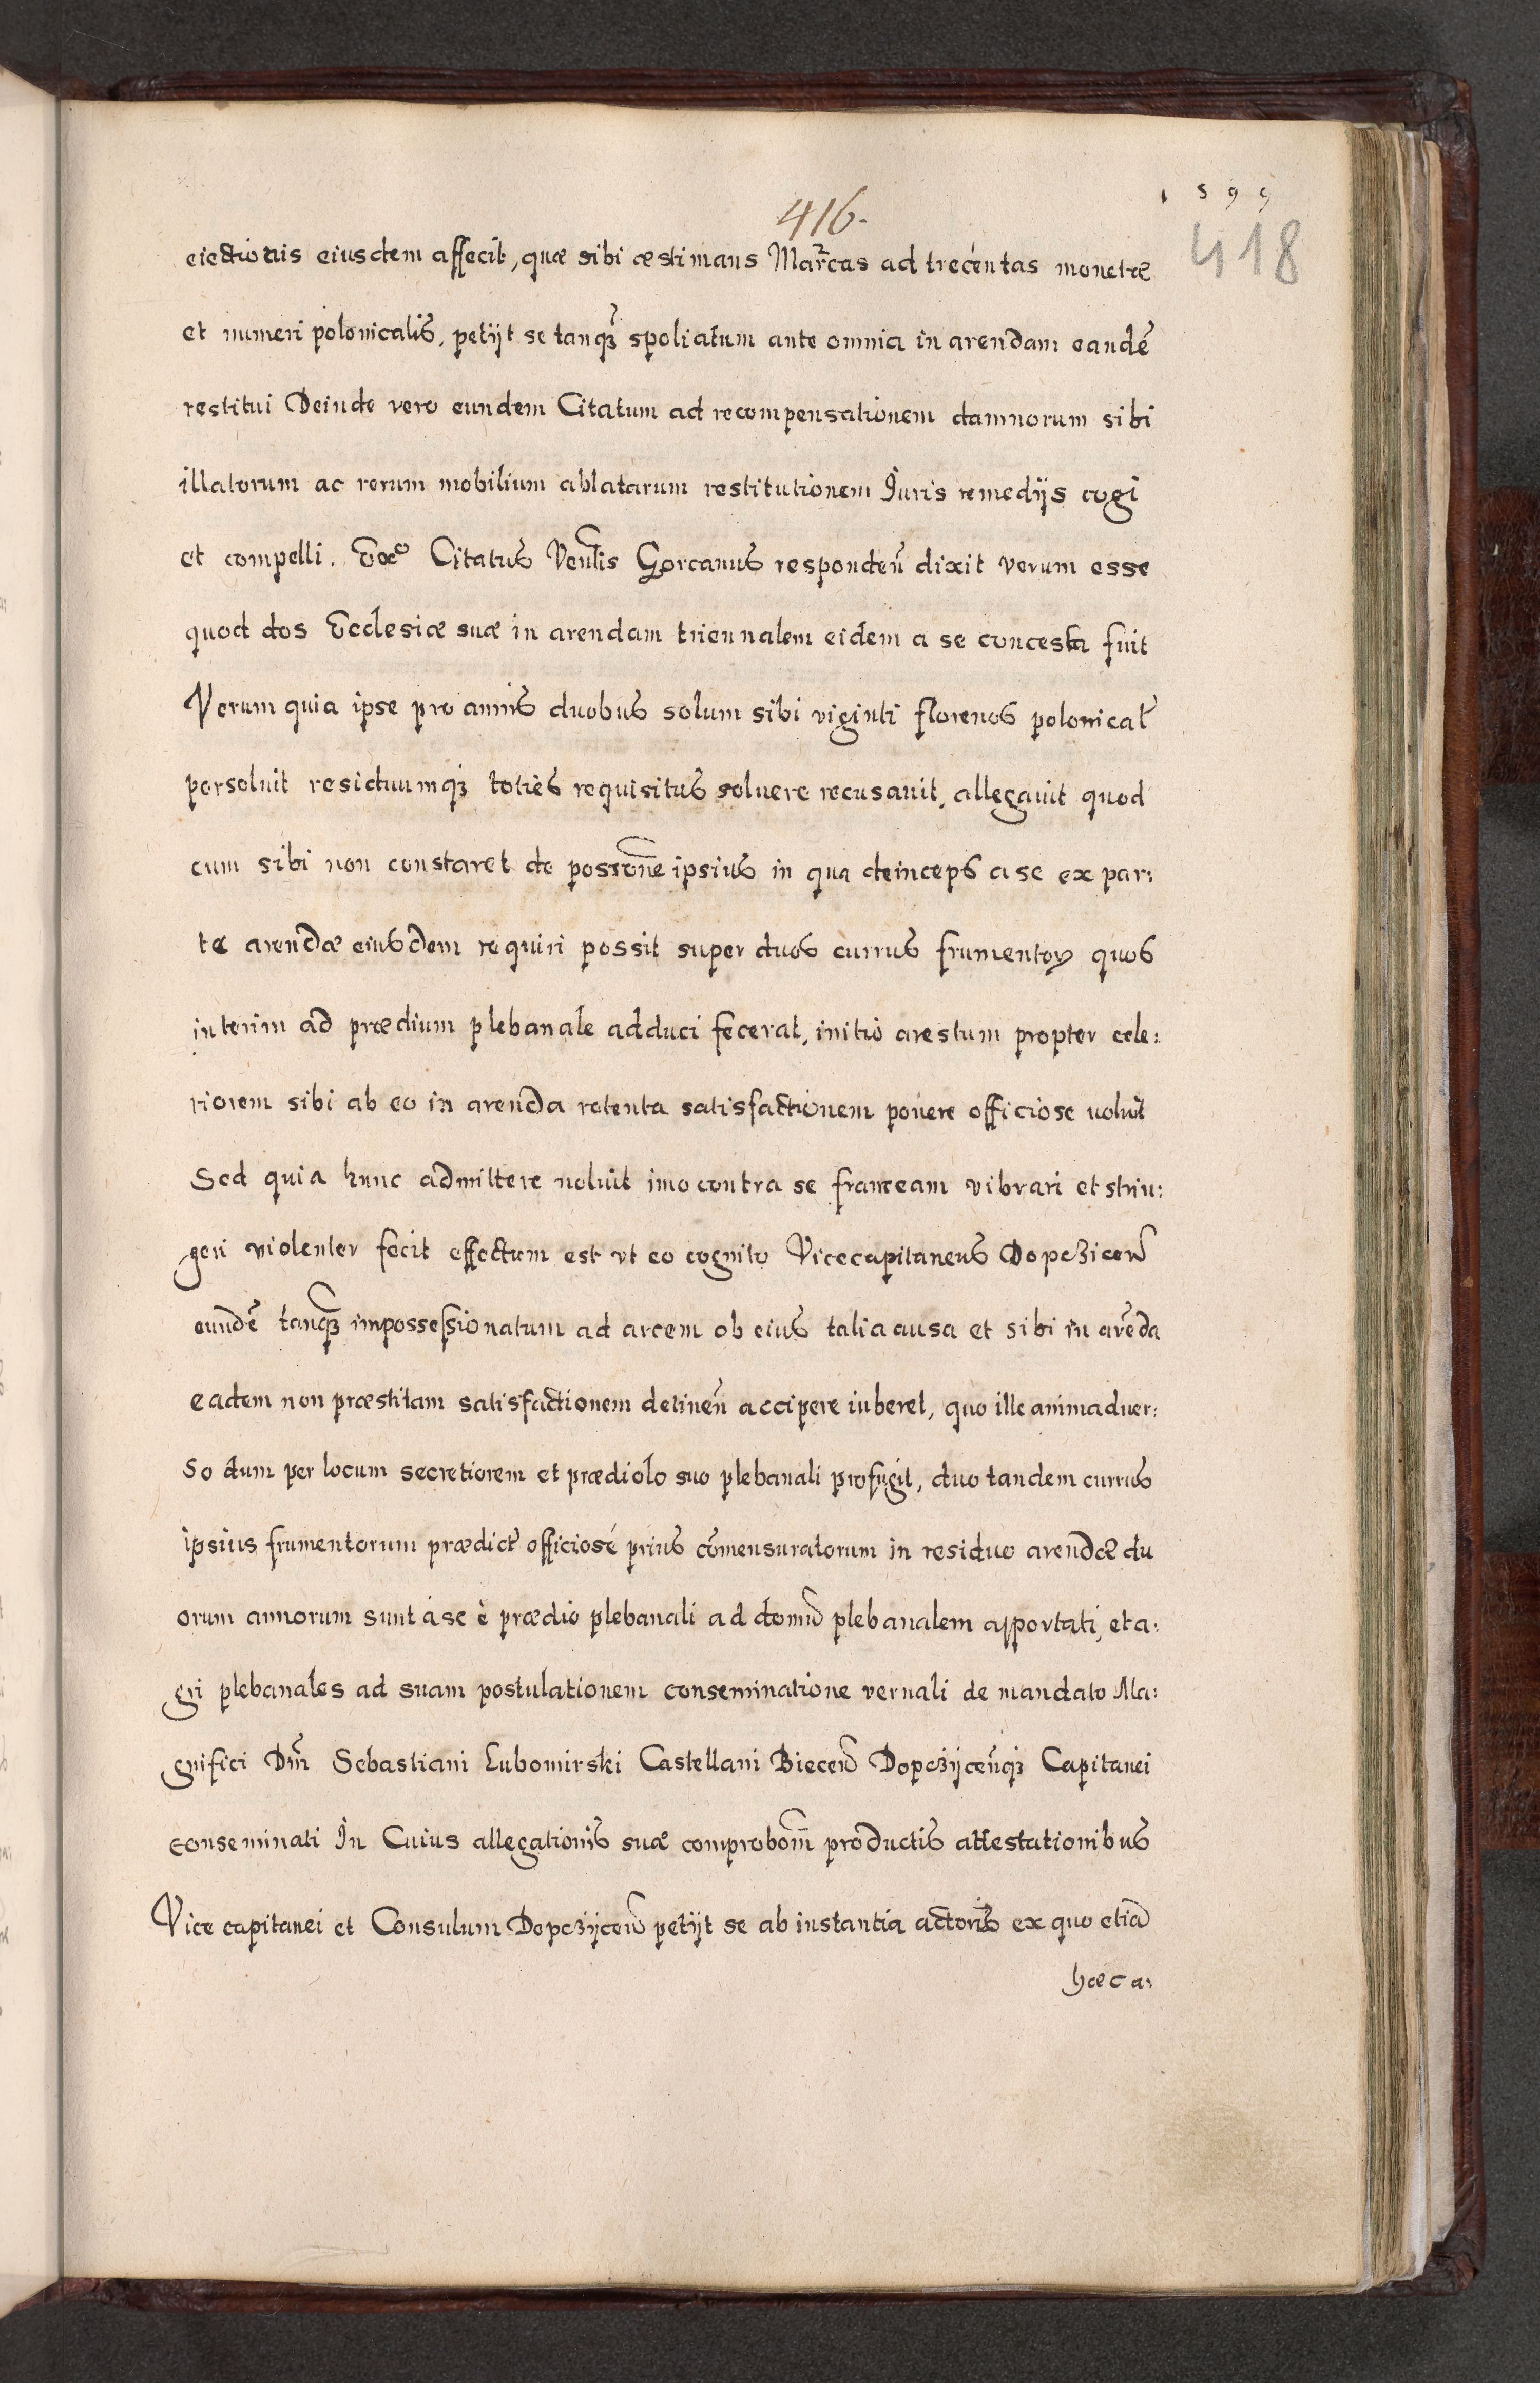 1599
416.
418
eiectionis eiusdem affecit, quæ sibi æstimans Marcas ad trecentas monetæ
et numeri polonicalis, petijt se tanqȝ spoliatum ante omnia in arendam eandē
restitui Deinde vero eundem Citatum ad recompensationem damnorum sibi
illatorum ac rerum mobilium ablatarum restitutionem Juris remedijs cogi
et compelli. Citatus Venlis Gorcanus respondeñ dixit verum esse
quod dos Ecclesiæ suæ in arendam triennalem eidem a se concessa fuit
Verum quia ipse pro annis duobus solum sibi viginti florenos polonical
persoluit residuumqȝ toties requisitus soluere recusauit, allegauit quod
cum sibi non constaret de possione ipsius in qua deinceps a se ex par:
te arendæ eiusdem requiri possit super duos currus frumentoꝝ quos
interim ad prædium plebanale adduci fecerat, initio arestum propter cele:
riorem sibi ab eo in arenda retenta satisfactionem ponere officiose uoluit
Sed quia hunc admittere noluit imo contra se frameam vibrari et strin:
geri violenter fecit effectum est vt eo cognito Vicecapitaneus Dopcziceñ
eundē tanqȝ impossessionatum ad arcem ob eius talia ausa et sibi in arēda
eadem non præstitam satisfactionem detineñ accipere iuberet, quo ille animaduer:
so dum per locum secretiorem et prædiolo suo plebanali profugit, duo tandem currus
ipsius frumentorum prædict officiosé prius cōmensuratorum in residuo arendæ du
orum annorum sunt á se è prædio plebanali ad domū plebanalem apportati, et a:
gri plebanales ad suam postulationem conseminatione vernali de mandato Ma:
gnifici Dm̄ Sebastiani Lubomirski Castellani Bieceñ Dopczijceñqȝ Capitanei
conseminati In Cuius allegationis suæ comprobom̄ productis attestationibus
Vice capitanei et Consulum Dopczijceñ petijt se ab instantia actoris ex quo etiā
hæc a: